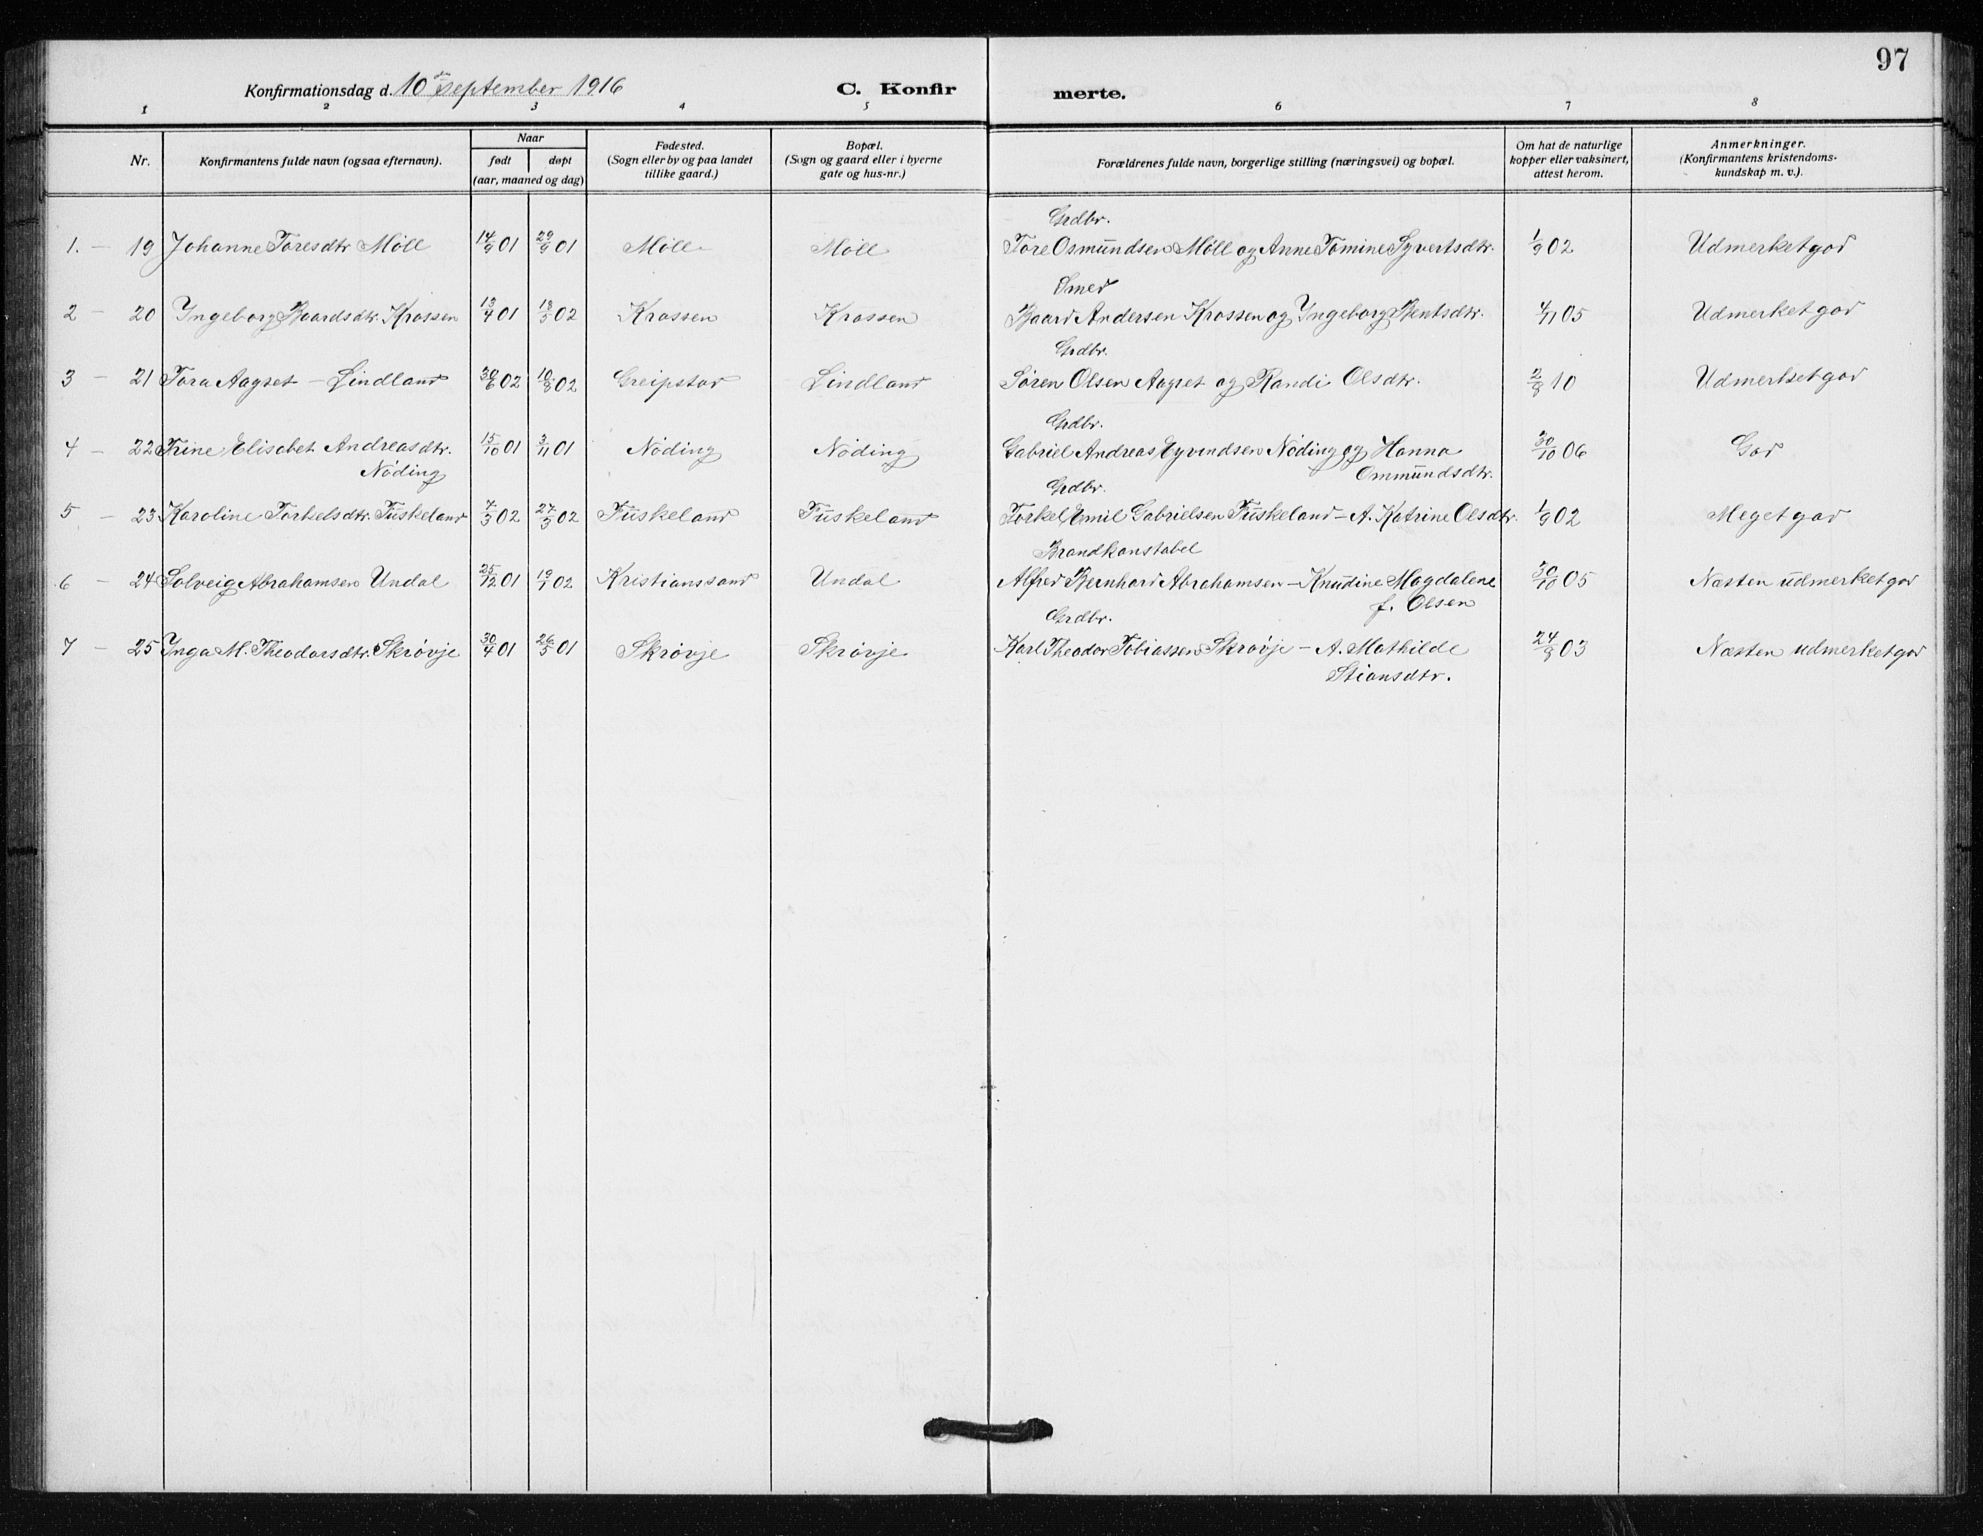 97
Konfirmationsdag d. 10de september 1916 C. Konfirmerte.
1 2 3 4 5 6 7 8
Nr. Konfirmantens fulde navn (ogsaa efternavn). Naar født døpt (aar, maaned og dag) Fødested. (Sogn eller by og paa landet tillike gaard.) Bopæl. (Sogn og gaard eller i byerne gate og hus-nr.) Forældrenes fulde navn, borgerlige stilling (næringsvei) og bopæl. Om hat de naturlige kopper eller vaksinert, attest herom. Anmerkninger. (Konfirmantens kristendoms-kundskap m. v.).
Grdbr.
1. — 19 Johanne Toresdtr. Møll 14/9 01 29/9 01 Møll Møll Tore Osmundsen Møll og Anne Tomine Syvertsdtr. 1/9 02 Udmerket god
Smed
2 — 20 Ingeborg Baardsdtr. Krossen 13/4 01 18/5 02 Krossen Krossen Baard Andersen Krossen og Ingeborg Bentsdtr. 4/11 05 Udmerket god
Grdbr.
3 — 21 Tora Aagset — Lindland 30/6 02 10/8 02 Greipstad Lindland Søren Olsen Aagset og Randi Olsdtr. 2/8 10 Udmerket god
Grdbr.
4 — 22 Trine Elisabet Andreasdtr. 15/10 01 3/11 01 Nöding Nöding Gabriel Andreas Eyvindsen Nöding og Hanna 30/10 06 God
Nöding Ommundsdtr.
Grdbr.
5 — 23 Karoline Torkelsdtr. Tuskeland 7/3 02 27/3 02 Tuskeland Tuskeland Torkel Emil Gabrielsen Tuskeland — A. Katrine Olsdtr. 1/9 02 Meget god
Brandkonstabel
6 — 24 Solveig Abrahamsen Undal 25/12 01 19/1 02 Kristianssand Undal Alfred Bernhard Abrahamsen — Knudine Magdalene 30/10 05 Næsten udmerket god
f. Olsen
Grdbr.
7 — 25 Inga M. Theodorsdtr. Skrøvje 30/4 01 26/5 01 Skrøvje Skrøvje Karl Theodor Tobiassen Skrøvje — A. Mathilde 24/9 03 Næsten udmerket god
Stiansdtr.